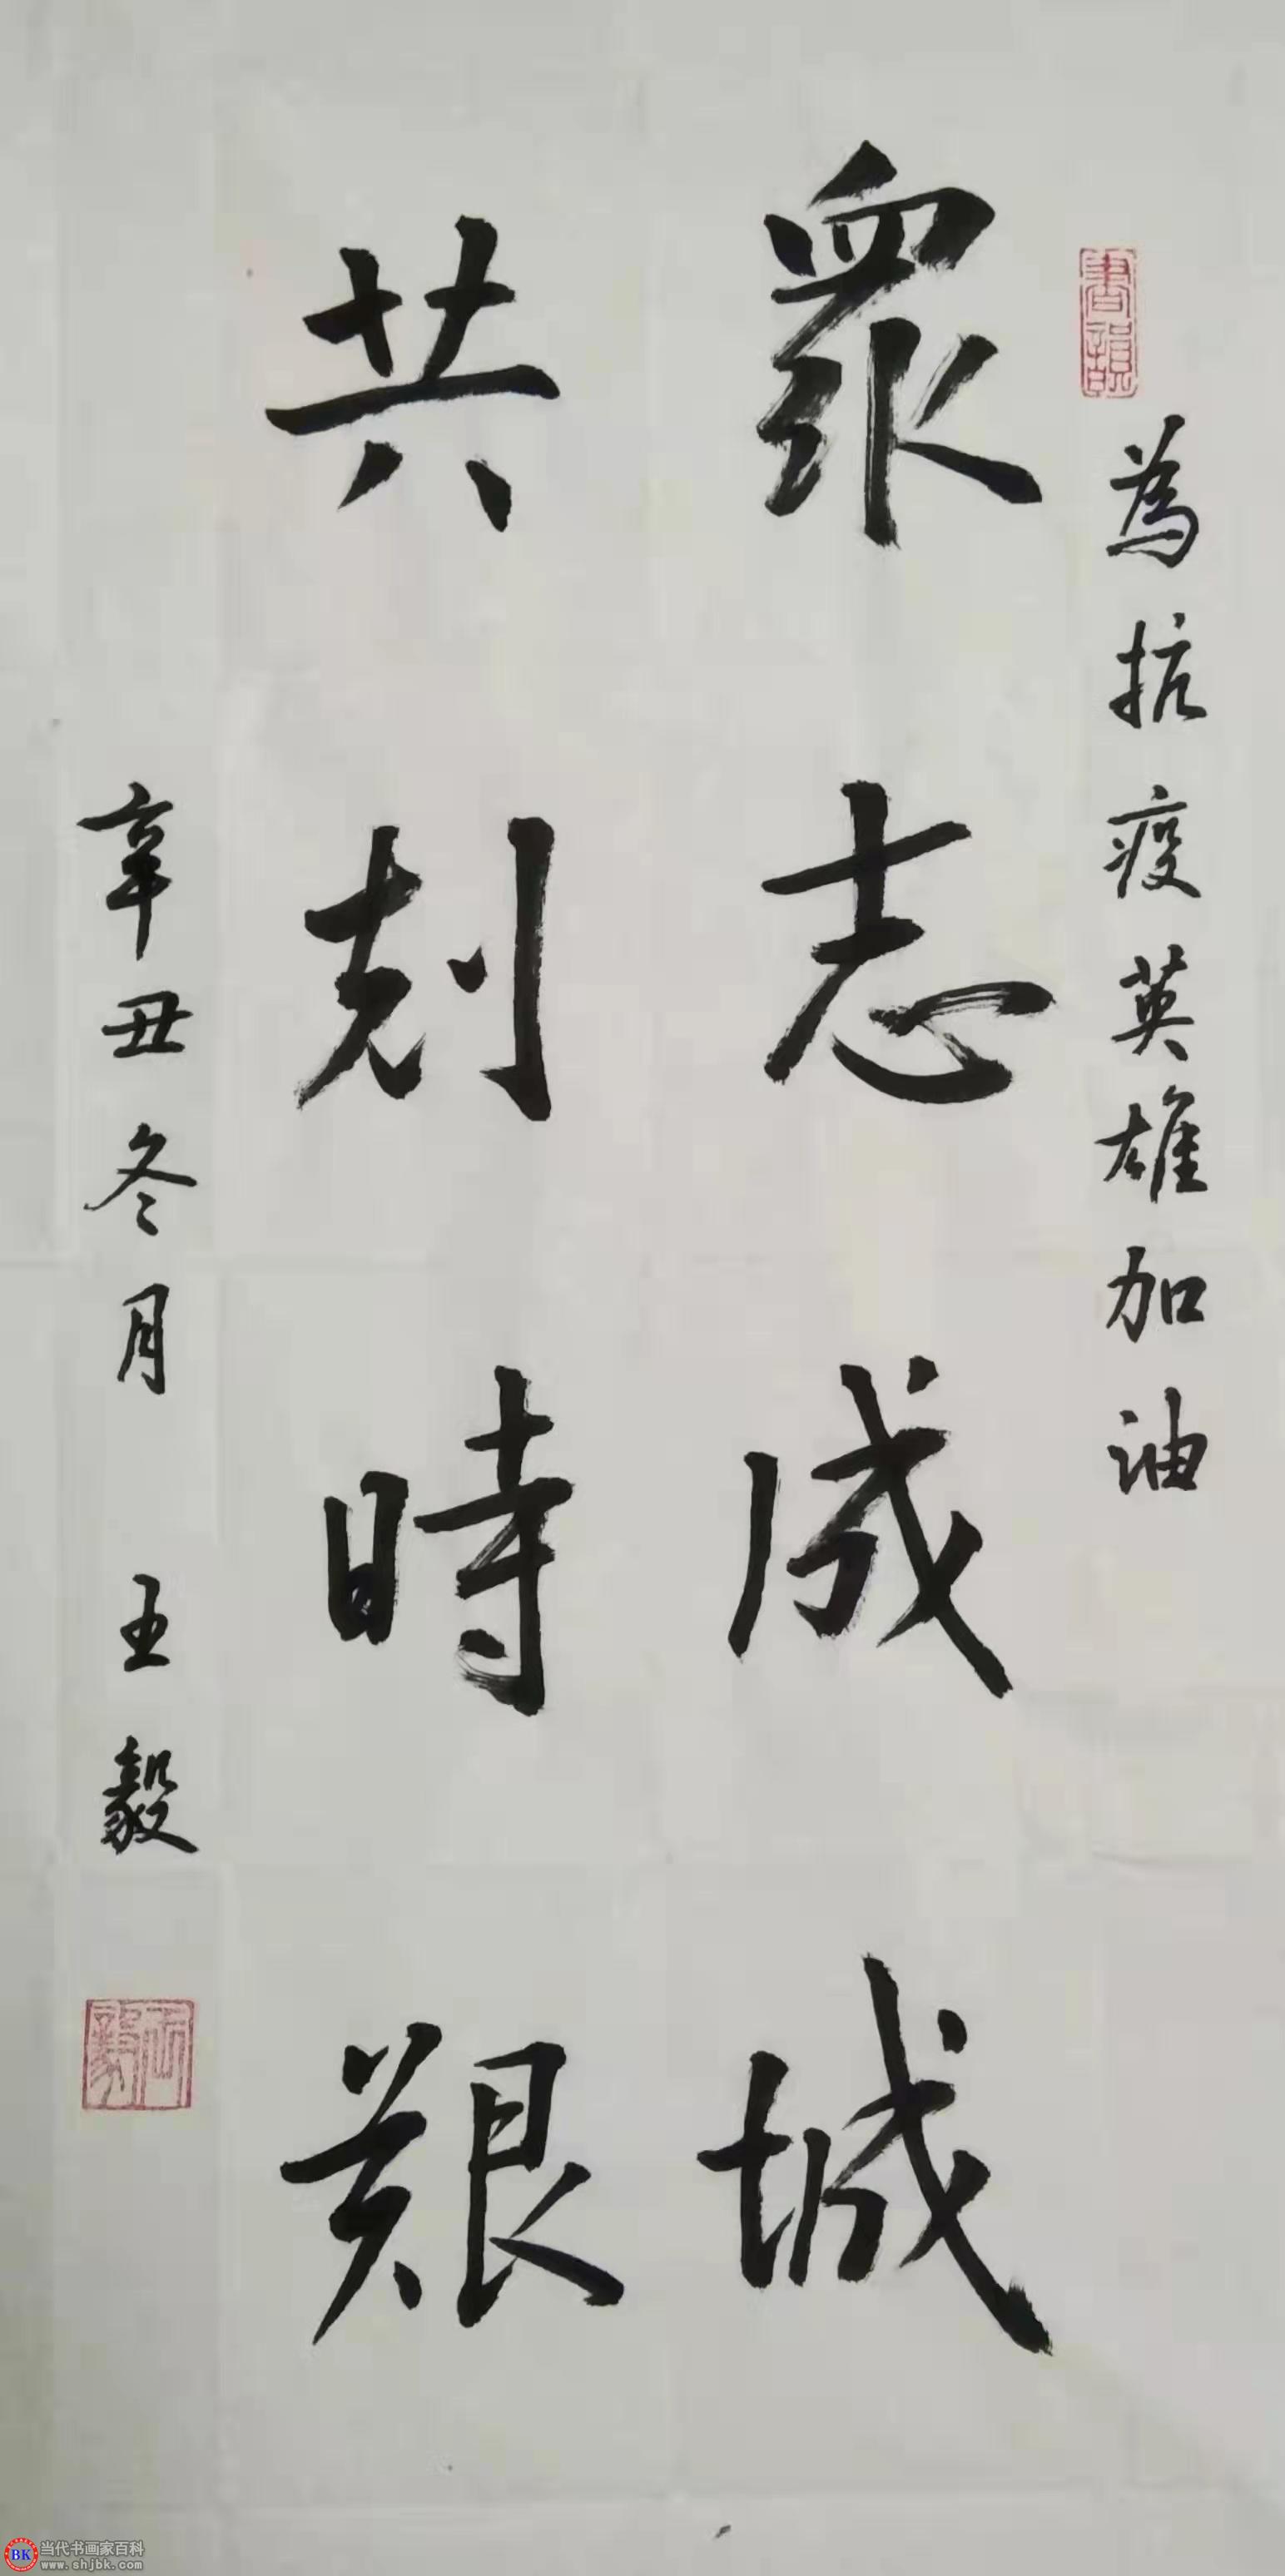 書韻
為抗疫英雄加油
衆志成城
共剋時艱
辛丑冬月 王毅
BK 当代书画家百科
www.shjbk.com